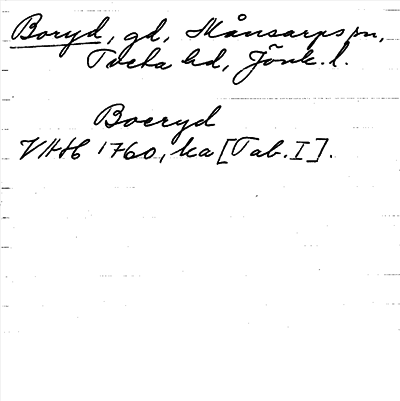 Boryd, gd, Månsarps sn,
Tveta hd, Jönk. l.
Boeryd
VHH 1760, ka [Tab. I].